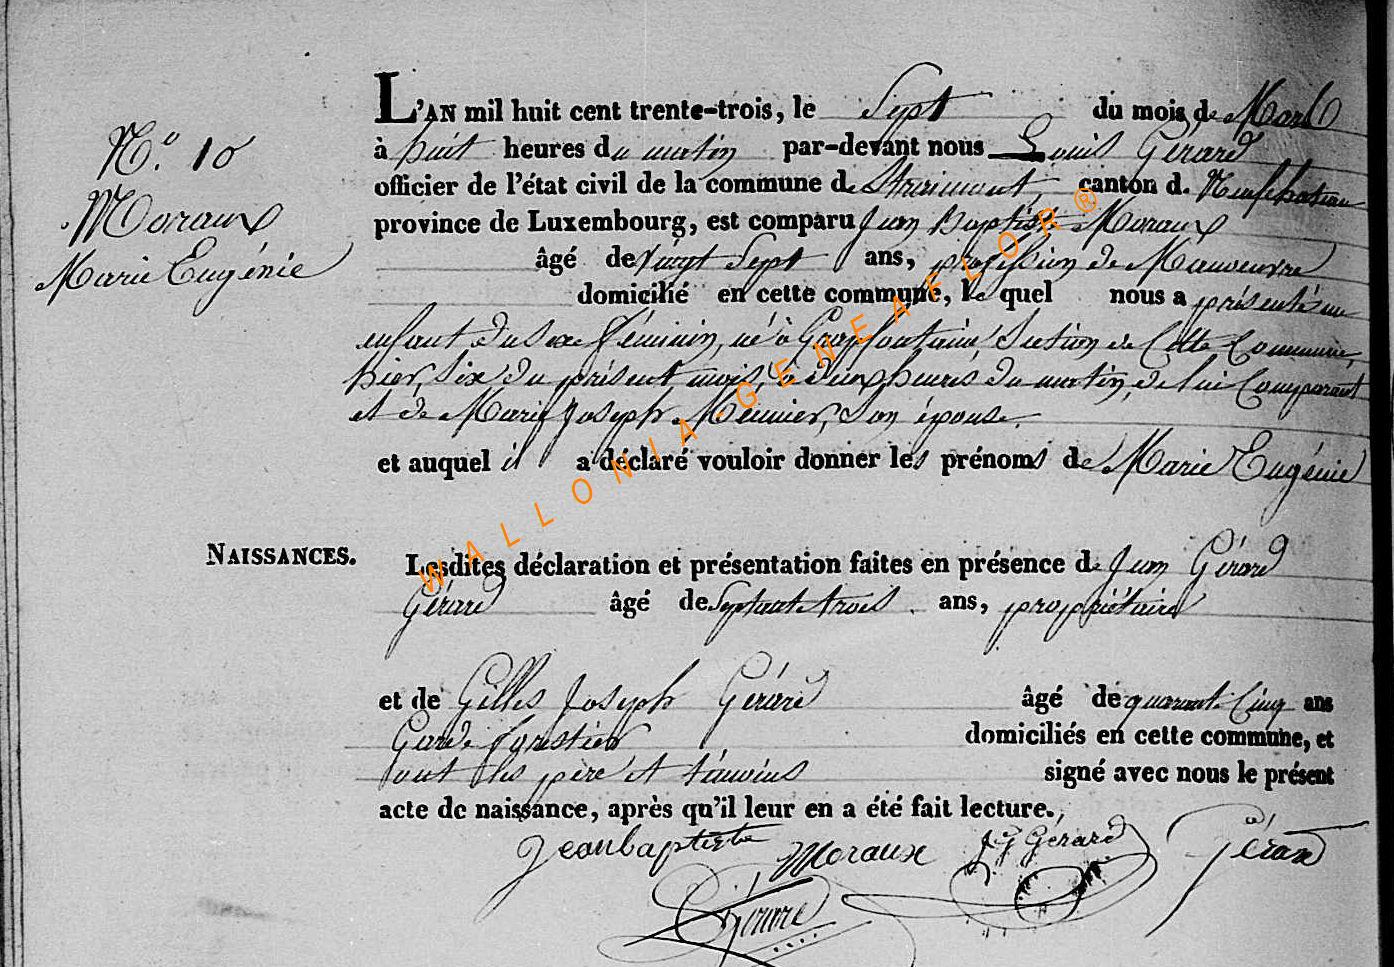 N.° 10
Moraux
Marie Eugénie
L'AN mil huit cent trente-trois, le Sept du mois de Mars
à huit heures du matin par-devant nous Louis Gérard
officier de l'état civil de la commune de Straimont, canton d. Neufchateau
province de Luxembourg, est comparu Jean Baptiste Moraux
âgé de vingt Sept ans, profession de Manoeuvre
domicilié en cette commune, le quel nous a présenté un
enfant du sexe féminin, né à Grapfontaine Section de Cette Commune,
hier, six du présent mois, à deux heures du matin, de lui Comparant
et de Marie Joseph Meunier, Son épouse.
et auquel il a déclaré vouloir donner les prénoms de Marie Eugénie
NAISSANCES.
Lesdites déclaration et présentation faites en présence d. Jean Gérard
Gérard âgé de Septante trois ans, propriétaire
et de Gilles Joseph Gérard âgé de quarante Cinq ans
Garde forestier domiciliés en cette commune, et
ont les père et témoins signé avec nous le présent
acte de naissance, après qu'il leur en a été fait lecture.
Jeanbaptiste Moraux JG Gérard Gérard
Gérard
WALLONIA GENEAFLOR®